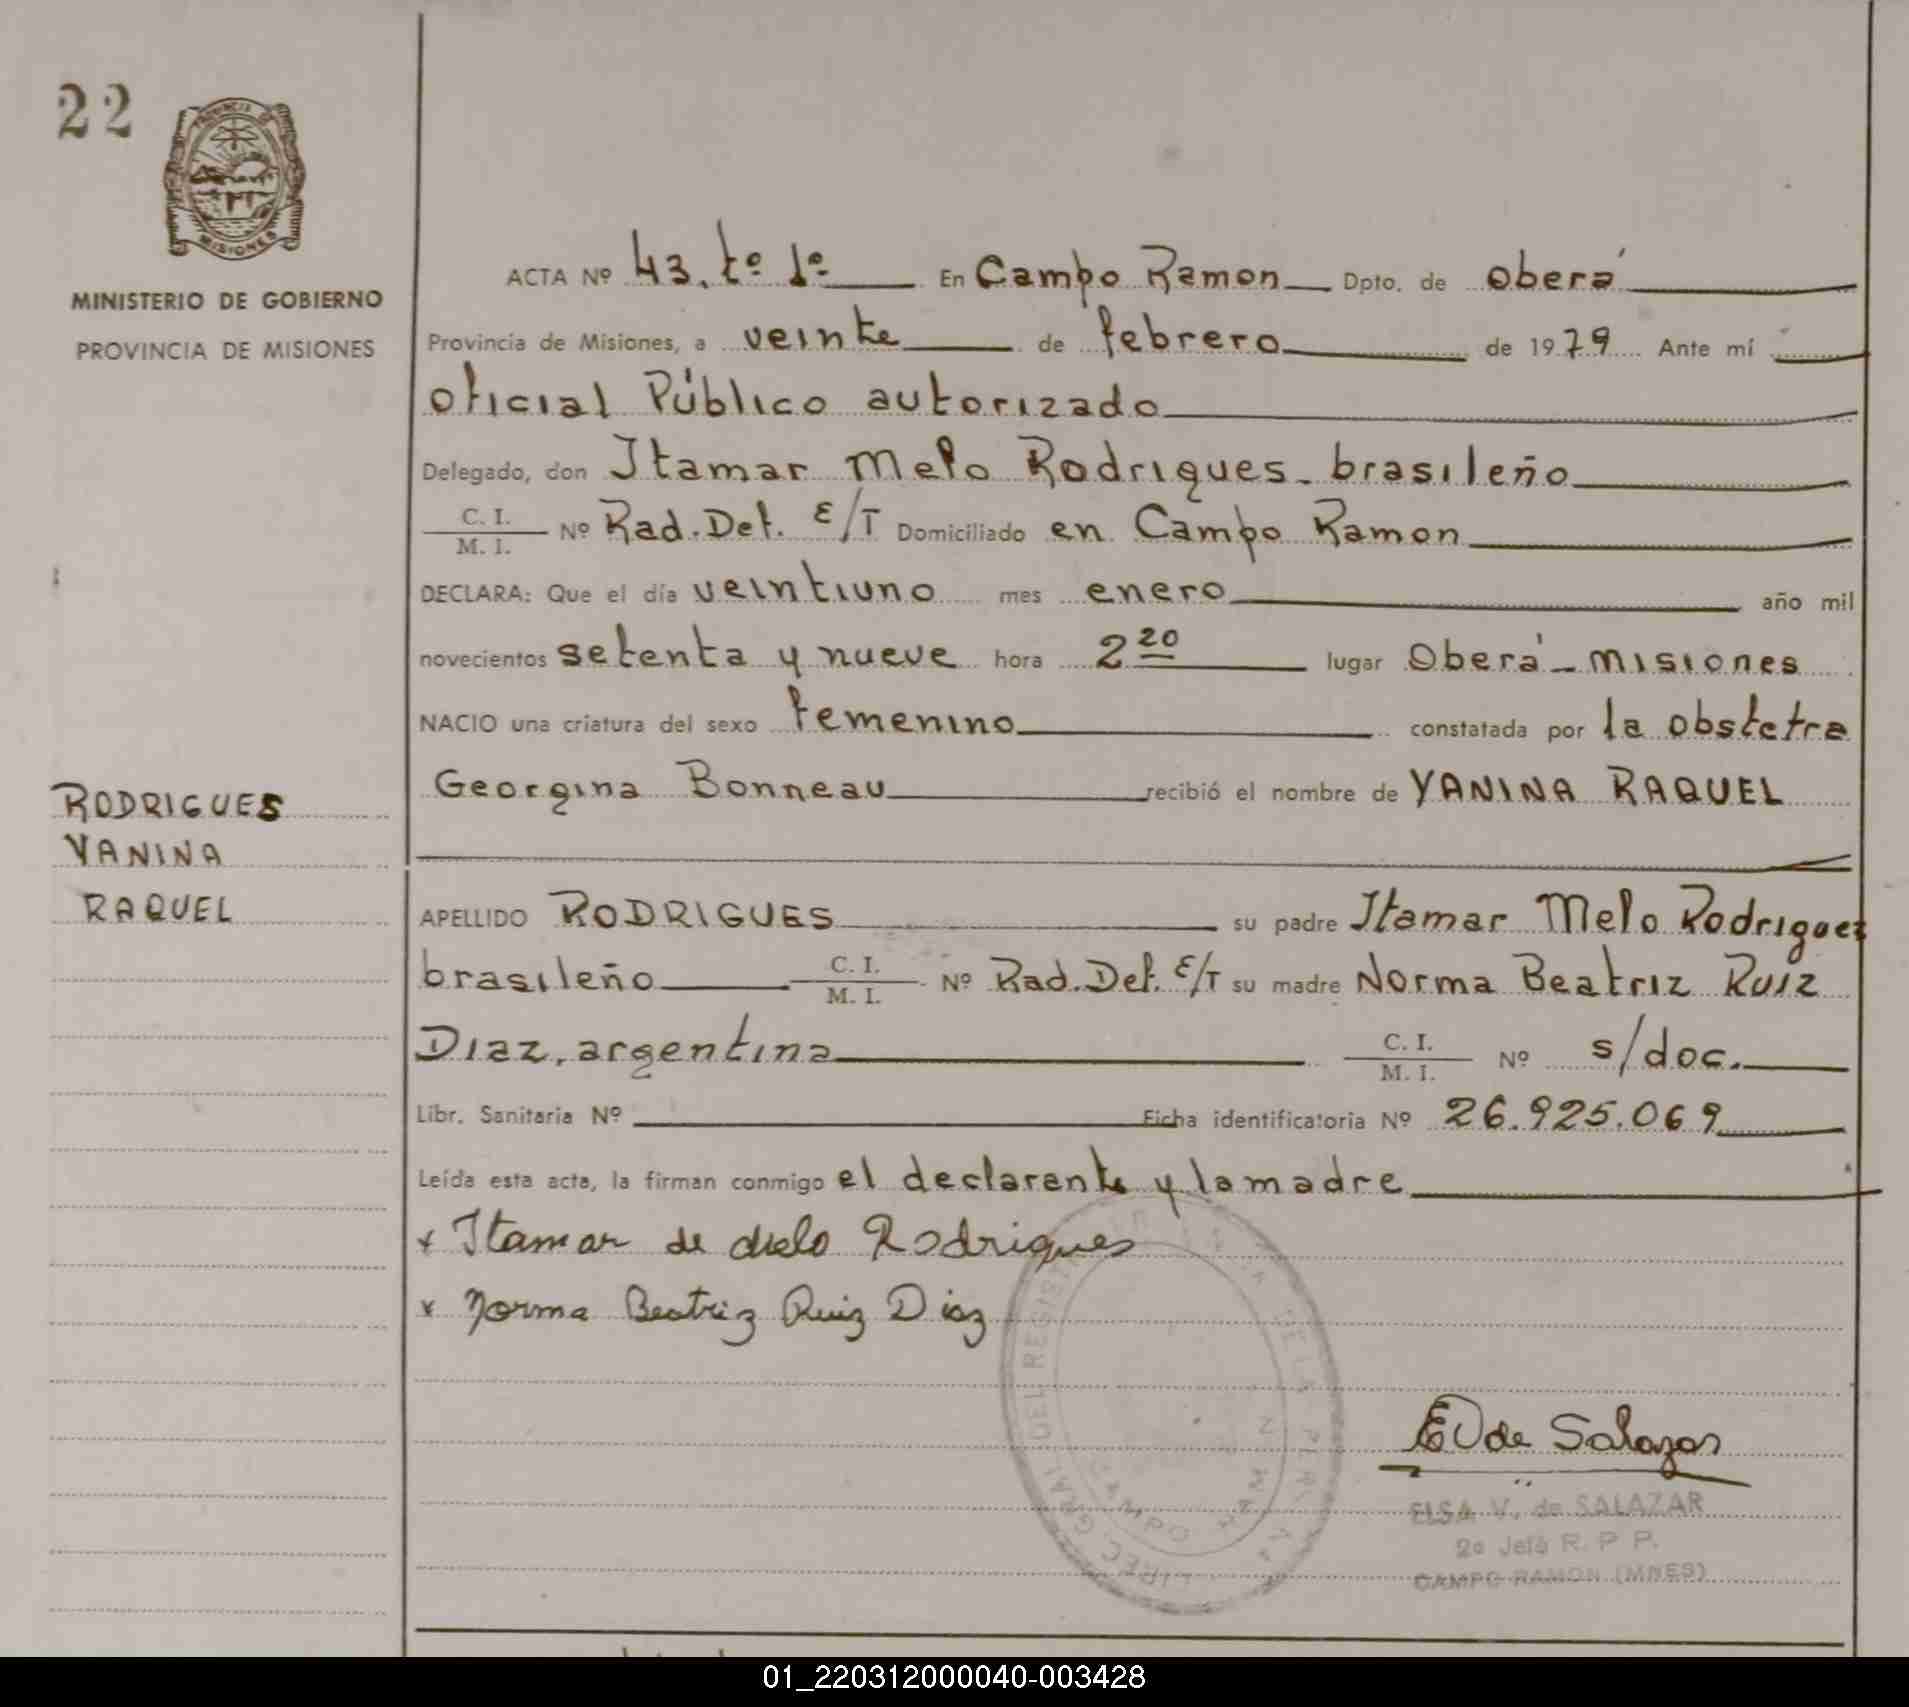 22
PROVINCIA DE
MISIONES
MINISTERIO DE GOBIERNO
PROVINCIA DE MISIONES
RODRIGUES
YANINA
RAQUEL
ACTA Nº 43. tº 1º En Campo Ramon Dpto. de Oberá
Provincia de Misiones, a veinte de febrero de 1979 Ante mí
oficial Público autorizado
Delegado, don Itamar Melo Rodrigues. brasileño
C. I.
M. I. Nº Rad. Def. E/T Domiciliado en Campo Ramon
DECLARA: Que el día veintiuno mes enero año mil
novecientos setenta y nueve hora 2 20 lugar Oberá - misiones
NACIO una criatura del sexo femenino constatada por la obstetra
Georgina Bonneau recibió el nombre de YANINA RAQUEL
APELLIDO RODRIGUES su padre Itamar Melo Rodrigues
brasileño C. I. M. I. Nº Rad. Def. E/T su madre Norma Beatriz Ruiz
Diaz, argentina C. I. M. I. Nº s/doc.
Libr. Sanitaria Nº Ficha identificatoria Nº 26.925.069
Leída esta acta, la firman conmigo el declarante y la madre
x Itamar de Melo Rodrigues
x Norma Beatriz Ruiz Diaz
DIREC GRAL DEL REGISTRO DE LAS PER
CAMPO RAMON
E V de Salazar
ELSA V. de SALAZAR
2º Jefa R. P P.
CAMPO RAMON (MNES)
01_220312000040-003428